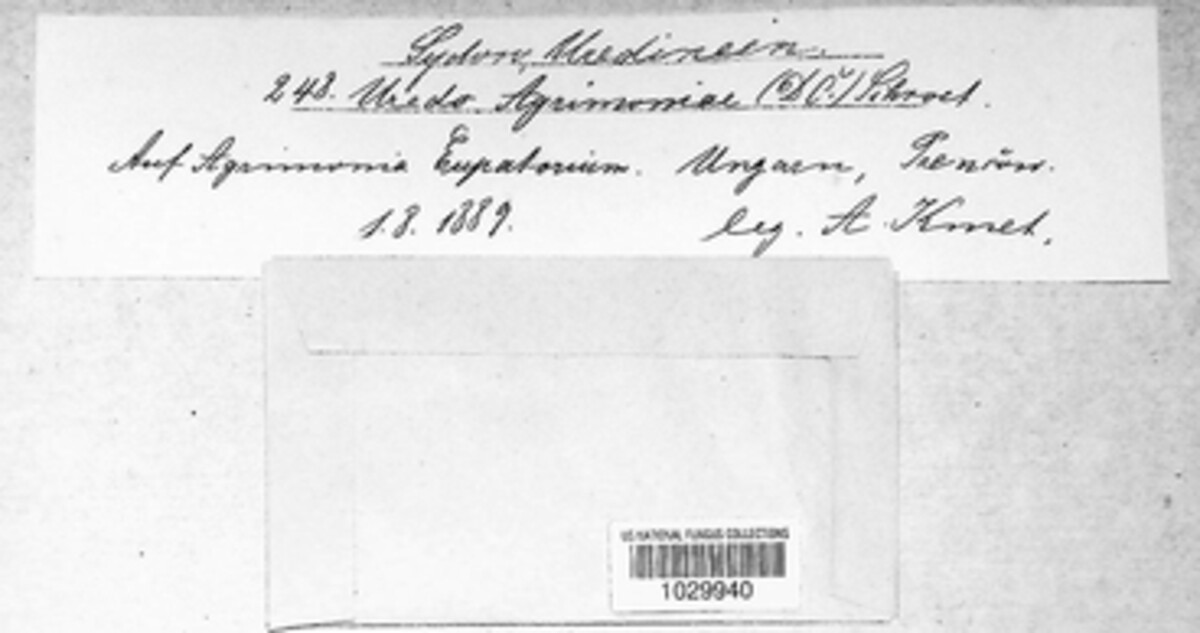 Sydow, Uredineen.
248. Uredo Agrimoniae (DC.) Schroet.
Auf Agrimonia Eupatorium. Ungarn,
1.8.1889. leg. A. Kmet.
US NATIONAL FUNGUS COLLECTIONS
1029940